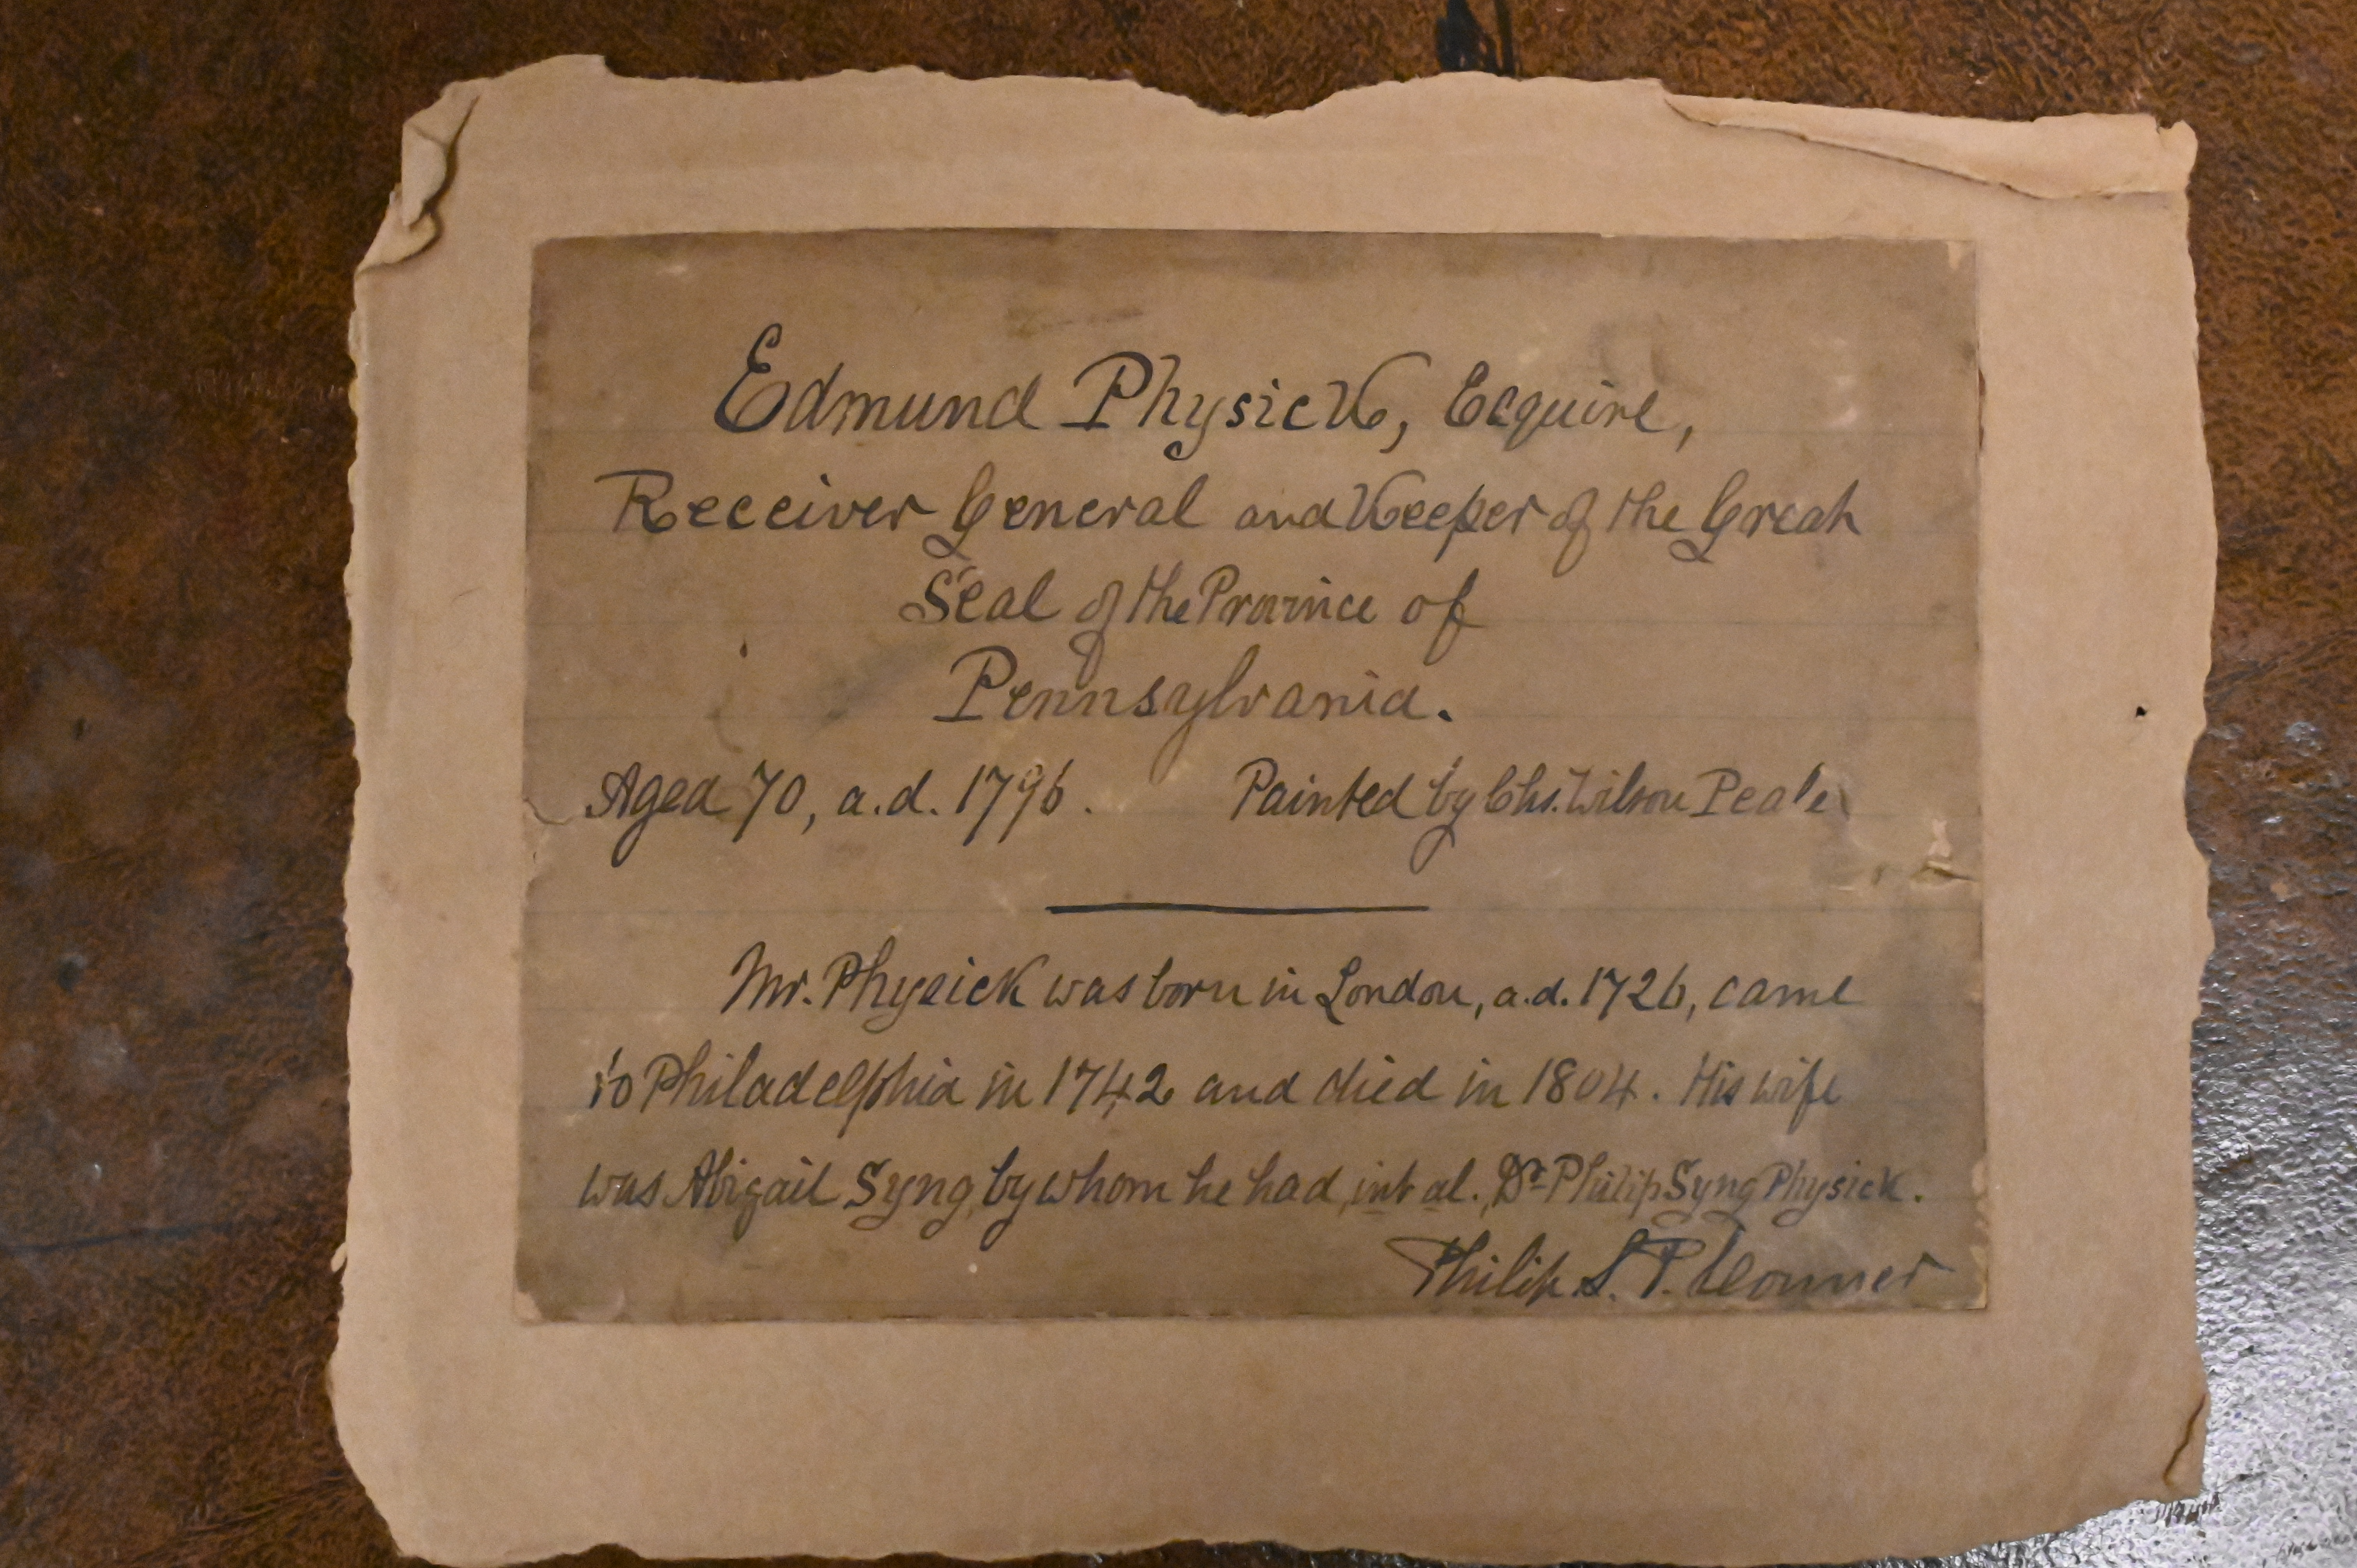 Edmund Physick, Esquire,
Receiver General and Keeper of the Great
Seal of the Province of
Pennsylvania.
Aged 70, a.d. 1796. Painted by Chs. Wilson Peale
Mr. Physick was born in London, a.d. 1726, came
to Philadelphia in 1742 and died in 1804. His wife
was Abigail Syng, by whom he had, int. al., Dr. Philip Syng Physick.
Philip S. P. Conner